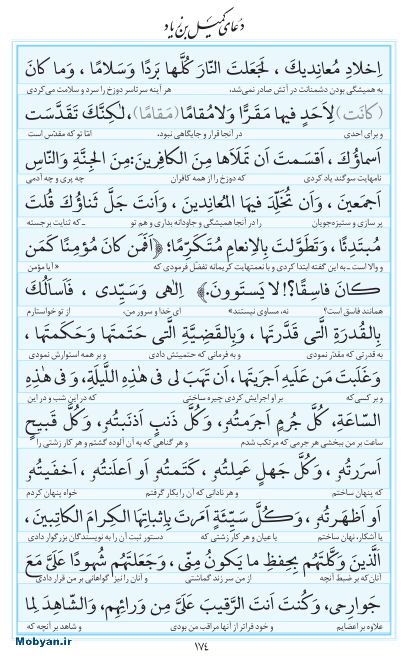 دعای کمیل بن زیاد
اِخلادِ مُعانِدیكَ ، لَجَعَلتَ النّارَ کُلَّها بَردًا وَسَلامًا ، وَما کانَ
به همیشگی بودن دشمنانت در آتش صادر نمی‌شد، هر آینه سرتاسر دوزخ را سرد و سلامت می‌کردی
(کانَت) لِاَحَدٍ فیها مَقَرًّا وَلامُقامًا (مَقامًا) ،لٰکِنَّكَ تَقَدَّسَت
و برای احدی در آنجا قرار و جایگاهی نبود، امّا تو که مقدّس است
اَسماؤُكَ ، اَقسَمتَ اَن تَملَاَها مِنَ الکافِرینَ:مِنَ الجِنَّةِ وَالنّاسِ
نامهایت سوگند یاد کردی که دوزخ را از همه کافران چه پری و چه آدمی
اَجمَعینَ ، وَاَن تُخَلِّدَ فیهَا المُعانِدینَ ، وَاَنتَ جَلَّ ثَناؤُكَ قُلتَ
پر سازی و ستیزه‌جویان را در آنجا همیشگی و جاودانه بداری و هم تو ـ که ثنایت برجسته
مُبتَدِئًا ، وَتَطَوَّلتَ بِالاِنعامِ مُتَکَرِّمًا؛ ﴿اَفَمَن کانَ مُؤمِنًا کَمَن
و والا است ـ به این گفته ابتدا کردی و با نعمتهایت کریمانه تفضّل فرمودی که «آیا مؤمن
کانَ فاسِقًا؟! لا یَستَوونَ.﴾ اِلٰهی وَسَیِّدی ، فَاَسأَلُكَ
همانند فاسق است؟ نه، مساوی نیستند» ای خدا و سرور من، از تو خواستارم
بِالقُدرَةِ الَّتی قَدَّرتَها ، وَبِالقَضِیَّةِ الَّتی حَتَمتَها وَحَکَمتَها ،
به قدرتی که مقدّر نمودی و به فرمانی که حتمیتش دادی و بر همه استوارش نمودی
وَغَلَبتَ مَن عَلَیهِ اَجرَیتَها، اَن تَهَبَ لی فی هٰذِهِ اللَّیلَةِ، وَفی هٰذِهِ
و بر کسی‌که بر او اجرایش کردی چیره ساختی که در این شب و در این
السّاعَةِ، کُلَّ جُرمٍ اَجرَمتُهُ، وَکُلَّ ذَنبٍ اَذنَبتُهُ، وَکُلَّ قَبیحٍ
ساعت بر من ببخشی هر جرمی که مرتکب شدم و هر گناهی که به آن آلوده گشتم و هر کار زشتی را
اَسرَرتُهُ ، وَکُلَّ جَهلٍ عَمِلتُهُ، کَتَمتُهُ اَو اَعلَنتُهُ، اَخفَیتُهُ
که پنهان ساختم و هر نادانی که آن را بکار گرفتم خواه پنهان کردم
اَو اَظهَرتُهُ ، وَکُلَّ سَیِّئَةٍ اَمَرتَ بِاِثباتِهَا الکِرامَ الکاتِبینَ،
یا آشکار، نهان ساختم یا عیان و هر کار زشتی که دستور ثبت آن را به نویسندگان بزرگوار دادی
الَّذینَ وَکَّلتَهُم بِحِفظِ ما یَکونُ مِنّی ، وَجَعَلتَهُم شُهودًا عَلَیَّ مَعَ
آنان که بر ضبط آنچه از من سر زند گماشتی و آنان را نیز گواهانی بر من قرار دادی
جَوارِحی، وَکُنتَ اَنتَ الرَّقیبَ عَلَیَّ مِن وَرائِهِم، وَالشّاهِدَ لِما
علاوه بر اعضایم و خود فراتر از آنها مراقب من بودی و شاهد بر آنچه که
١٧٤
Mobyan.ir